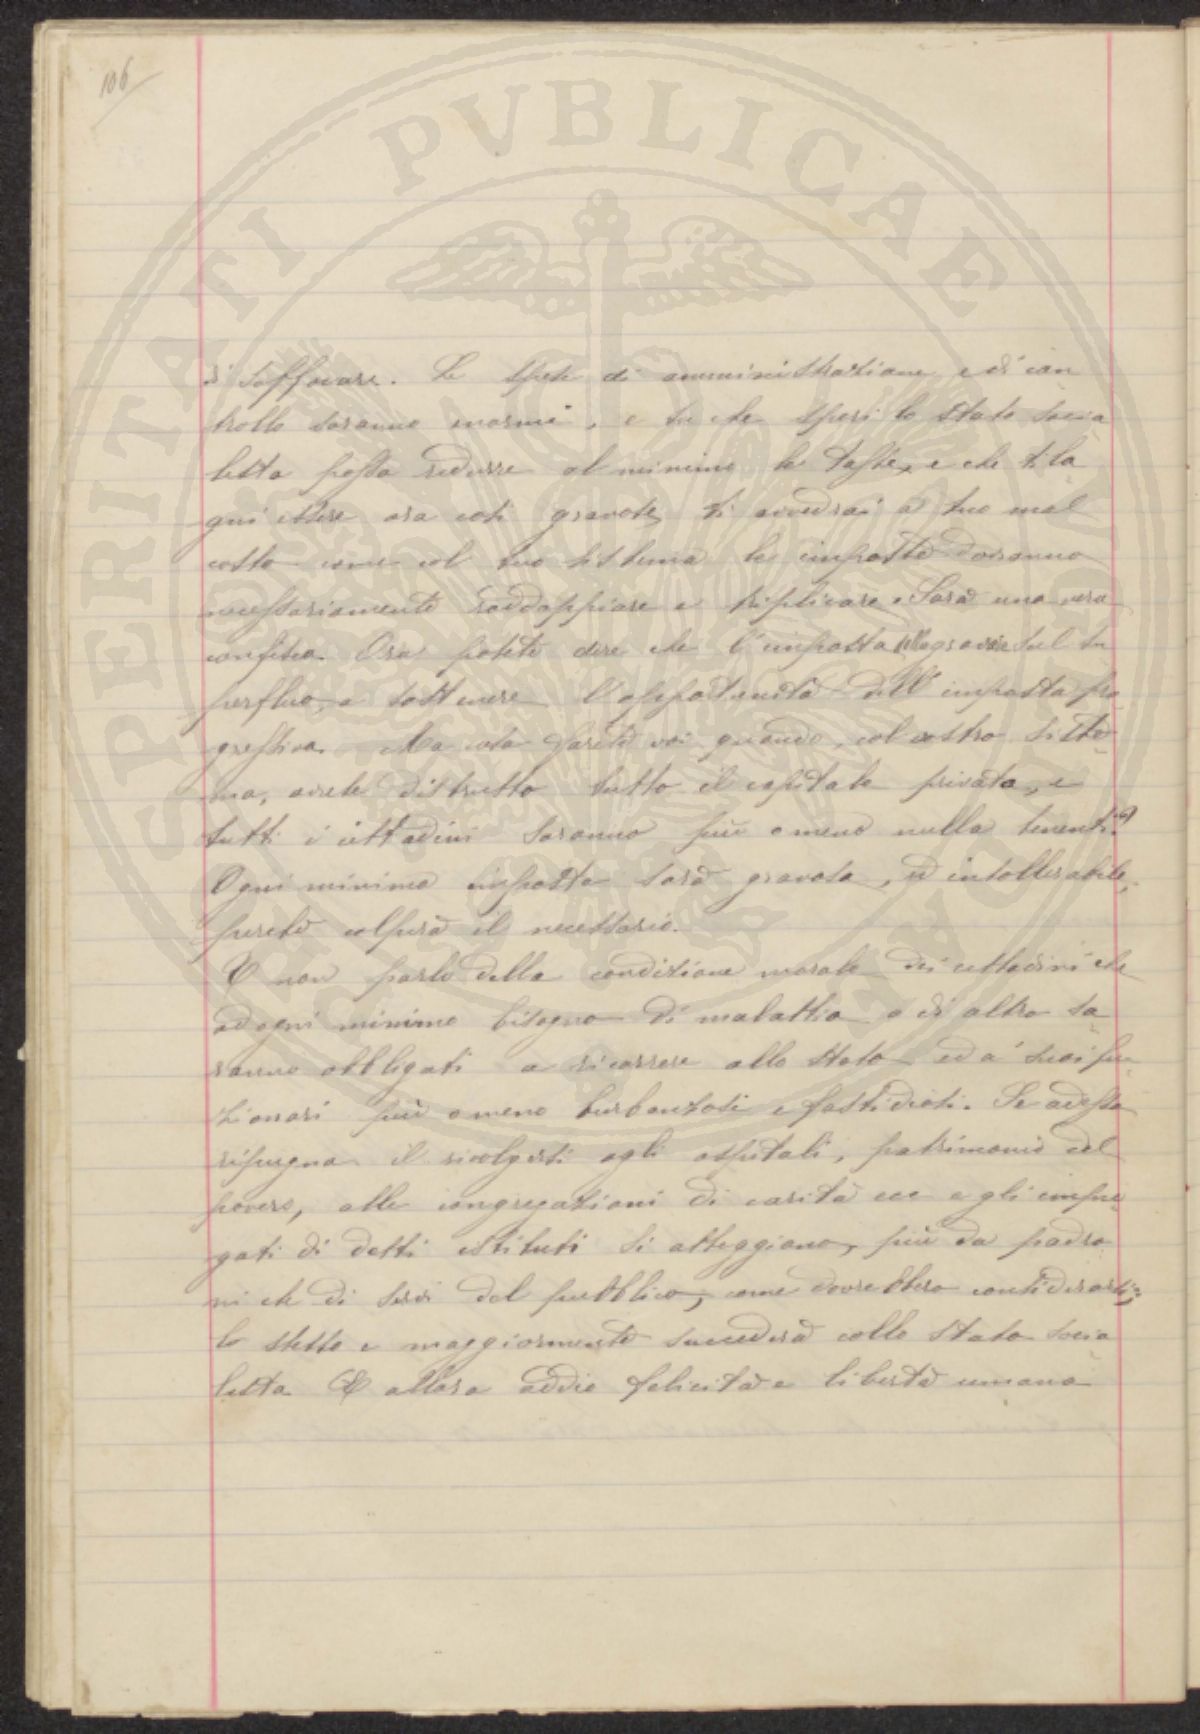 106
di soffocare. Le spese di amministrazione e di con
trollo saranno enormi, e tu che speri lo Stato socia
lista possa ridurre al minimo le tasse, e che ti la
gni essere ora così gravose, ti avvedrai a tuo mal
costo come col tuo sistema le imposte dovranno
necessariamente raddoppiare e triplicare. Sarà una vera
confisca. Ora potete dire che l'imposta gravi sul su
perfluo, e sostenere l'opportunità dell'imposta pro
gressiva. Ma cosa farete voi quando, col vostro siste
ma, avrete distrutto tutto il capitale privato, e
tutti i cittadini saranno più o meno nulla tenenti?
Ogni minima imposta sarà gravosa, ed intollerabile,
perché colpirà il necessario.
E non parlo della condizione morale dei cittadini che
ad ogni minimo bisogno di malattia o di altro sa
ranno obbligati a ricorrere allo Stato ed a' suoi fun
zionari più o meno burbanzosi e fastidiosi. Se adesso
ripugna il rivolgersi agli ospitali, patrimonio del
povero, alle congregazioni di carità ecc e gli impie
gati di detti istituti si atteggiano, più da padro
ni che di servi del pubblico, come dovrebbero considerarsi,
lo stesso e maggiormente succederà collo Stato socia
lista. E allora addio felicità e libertà umana
PROSPERITATI PVBLICAE